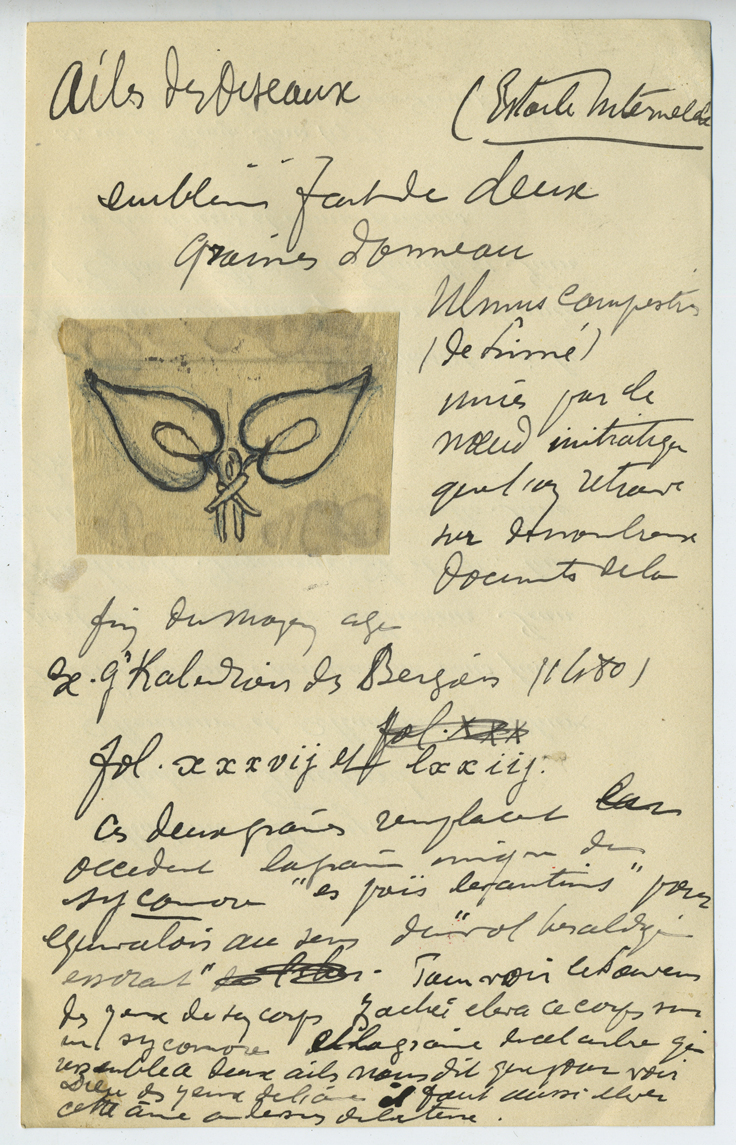 Ailes des Oiseaux
(Estoile Internelle
emblème fait de deux
graines d'ormeau
Ulmus campestris
(de Linné)
unies par le
nœud initiatique
que l'on retrouve
sur de nombreux
documents de la
fin du moyen age
ex. Gd Kalendrier des Bergiers (1480)
fol. xxx
fol. xxxvij et lxxiij.
Ces deux graines remplacent en
occident la graine unique du
sycomore "es païs levantins" pour
equivalois au sens du "vol heraldique
essorant"
des yeux de son corps Zachée eleva ce corps sur
un sycomore et la graine de cet arbre qui
ressemble a deux ailes nous dit que pour voir
Dieu des yeux de l'âme il faut aussi elever
cette âme au dessus de la terre.